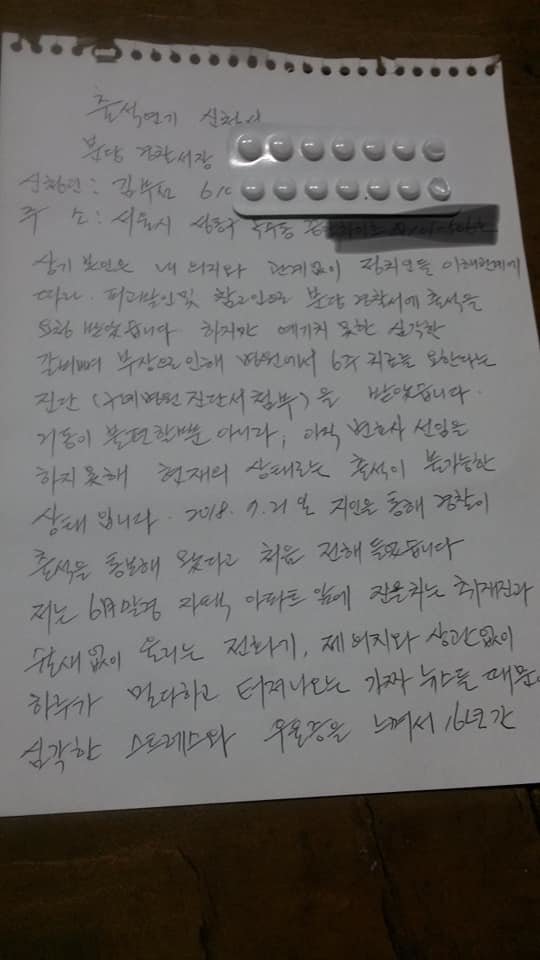 출석연기 신청서
분당 경찰서장
신청인: 김부선 61
주 소: 서울시 성동구 옥수동
상기 본인은 내 의지와 관계없이 정치인들 이해관계에
따라. 피고발인및 참고인으로 분당 경찰서에 출석을
요청 받았습니다. 하지만 예기치 못한 심각한
갈비뼈 부상으로 인해 병원에서 6주 치료를 요한다는
진단 (구례병원 진단서첨부)을 받았습니다.
거동이 불편할뿐 아니라, 아직 변호사 선임을
하지 못해 현재의 상태로는 출석이 불가능한
상태 입니다. 2018. 7.21일 지인을 통해 경찰이
출석을 통보해 왔다고 처음 전해 들었습니다
저는 6月말경 자택 아파트 앞에 진을치는 취재진과
쉴새없이 울리는 전화기, 제 의지와 상관없이
하루가 멀다하고 터져나오는 가짜 뉴스들 때문
심각한 스트레스와 우울증을 느껴서 16년간